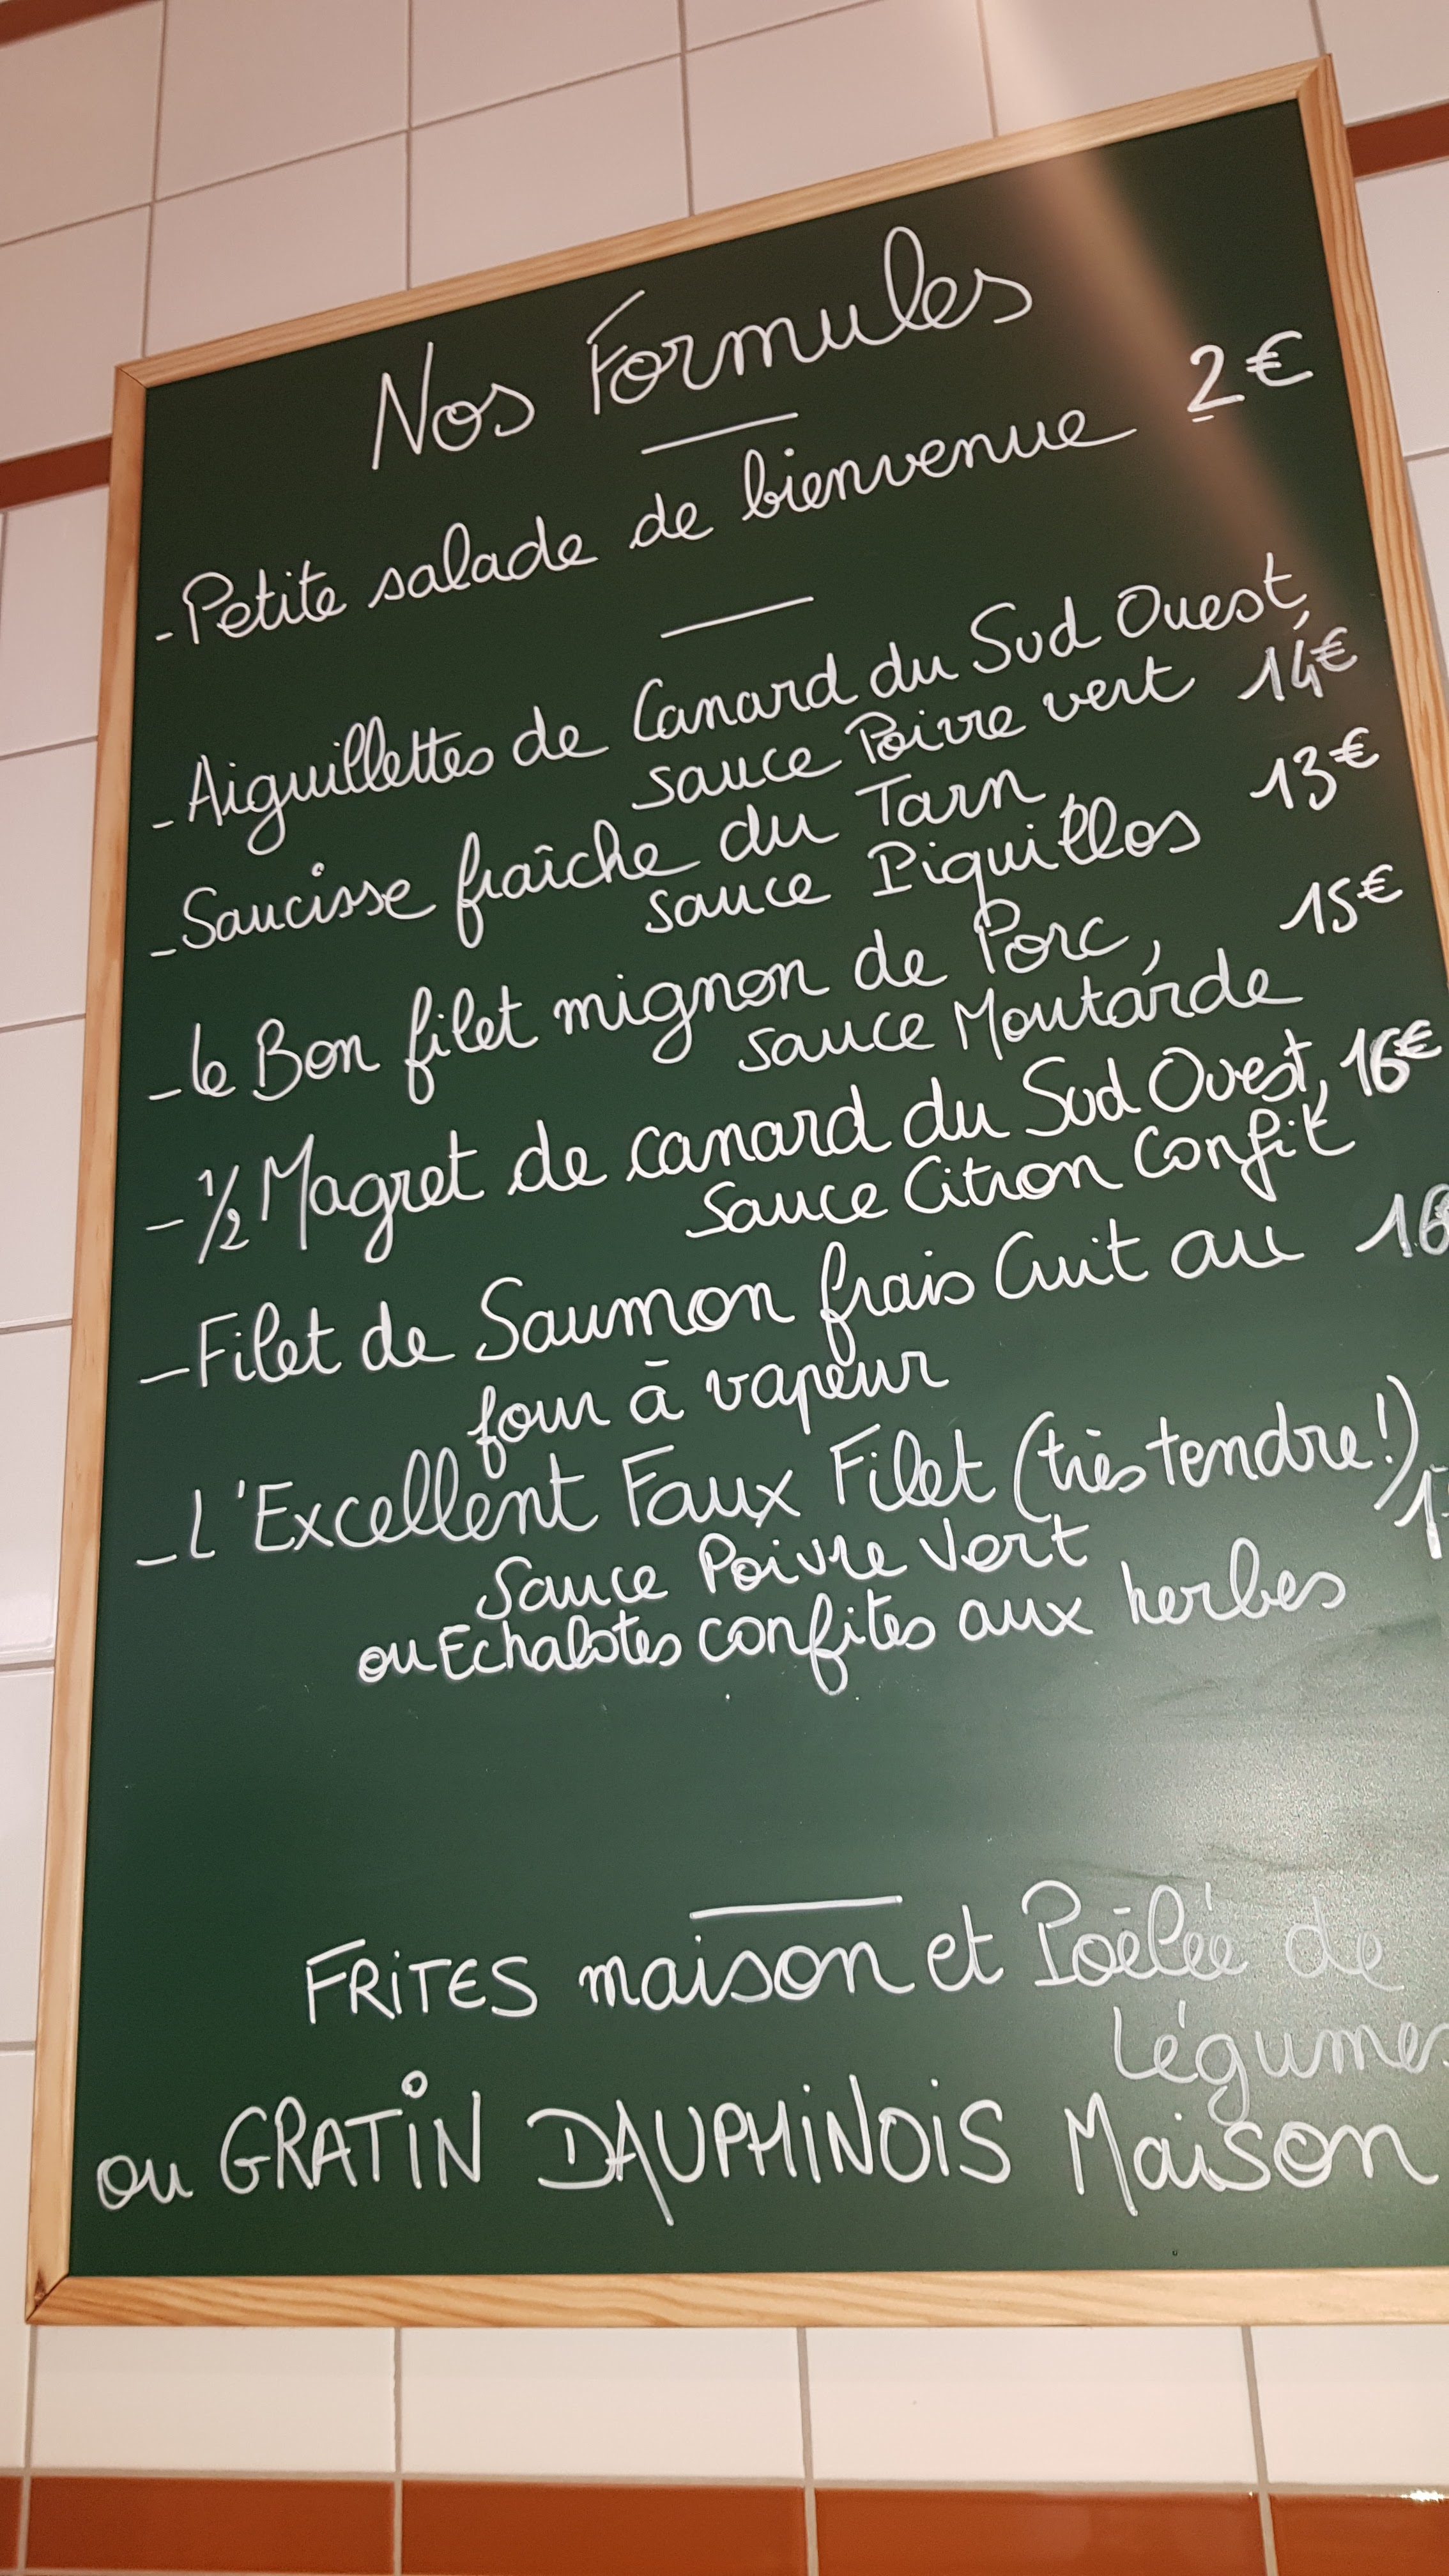 Nos Formules
- Petite salade de bienvenue 2€
- Aiguillettes de Canard du Sud Ouest,
sauce Poivre vert 14€
- Saucisse fraîche du Tarn, 13€
sauce Piquillos
- le Bon filet mignon de Porc, 15€
sauce Moutarde
- 1/2 Magret de canard du Sud Ouest, 16€
Sauce Citron Confit
- Filet de Saumon frais Cuit au 16€
four à vapeur
- L'Excellent Faux Filet (très tendre!)
Sauce Poivre Vert
ou Echalotes confites aux herbes
FRITES maison et Poêlée de
Légumes
ou GRATIN DAUPHINOIS Maison